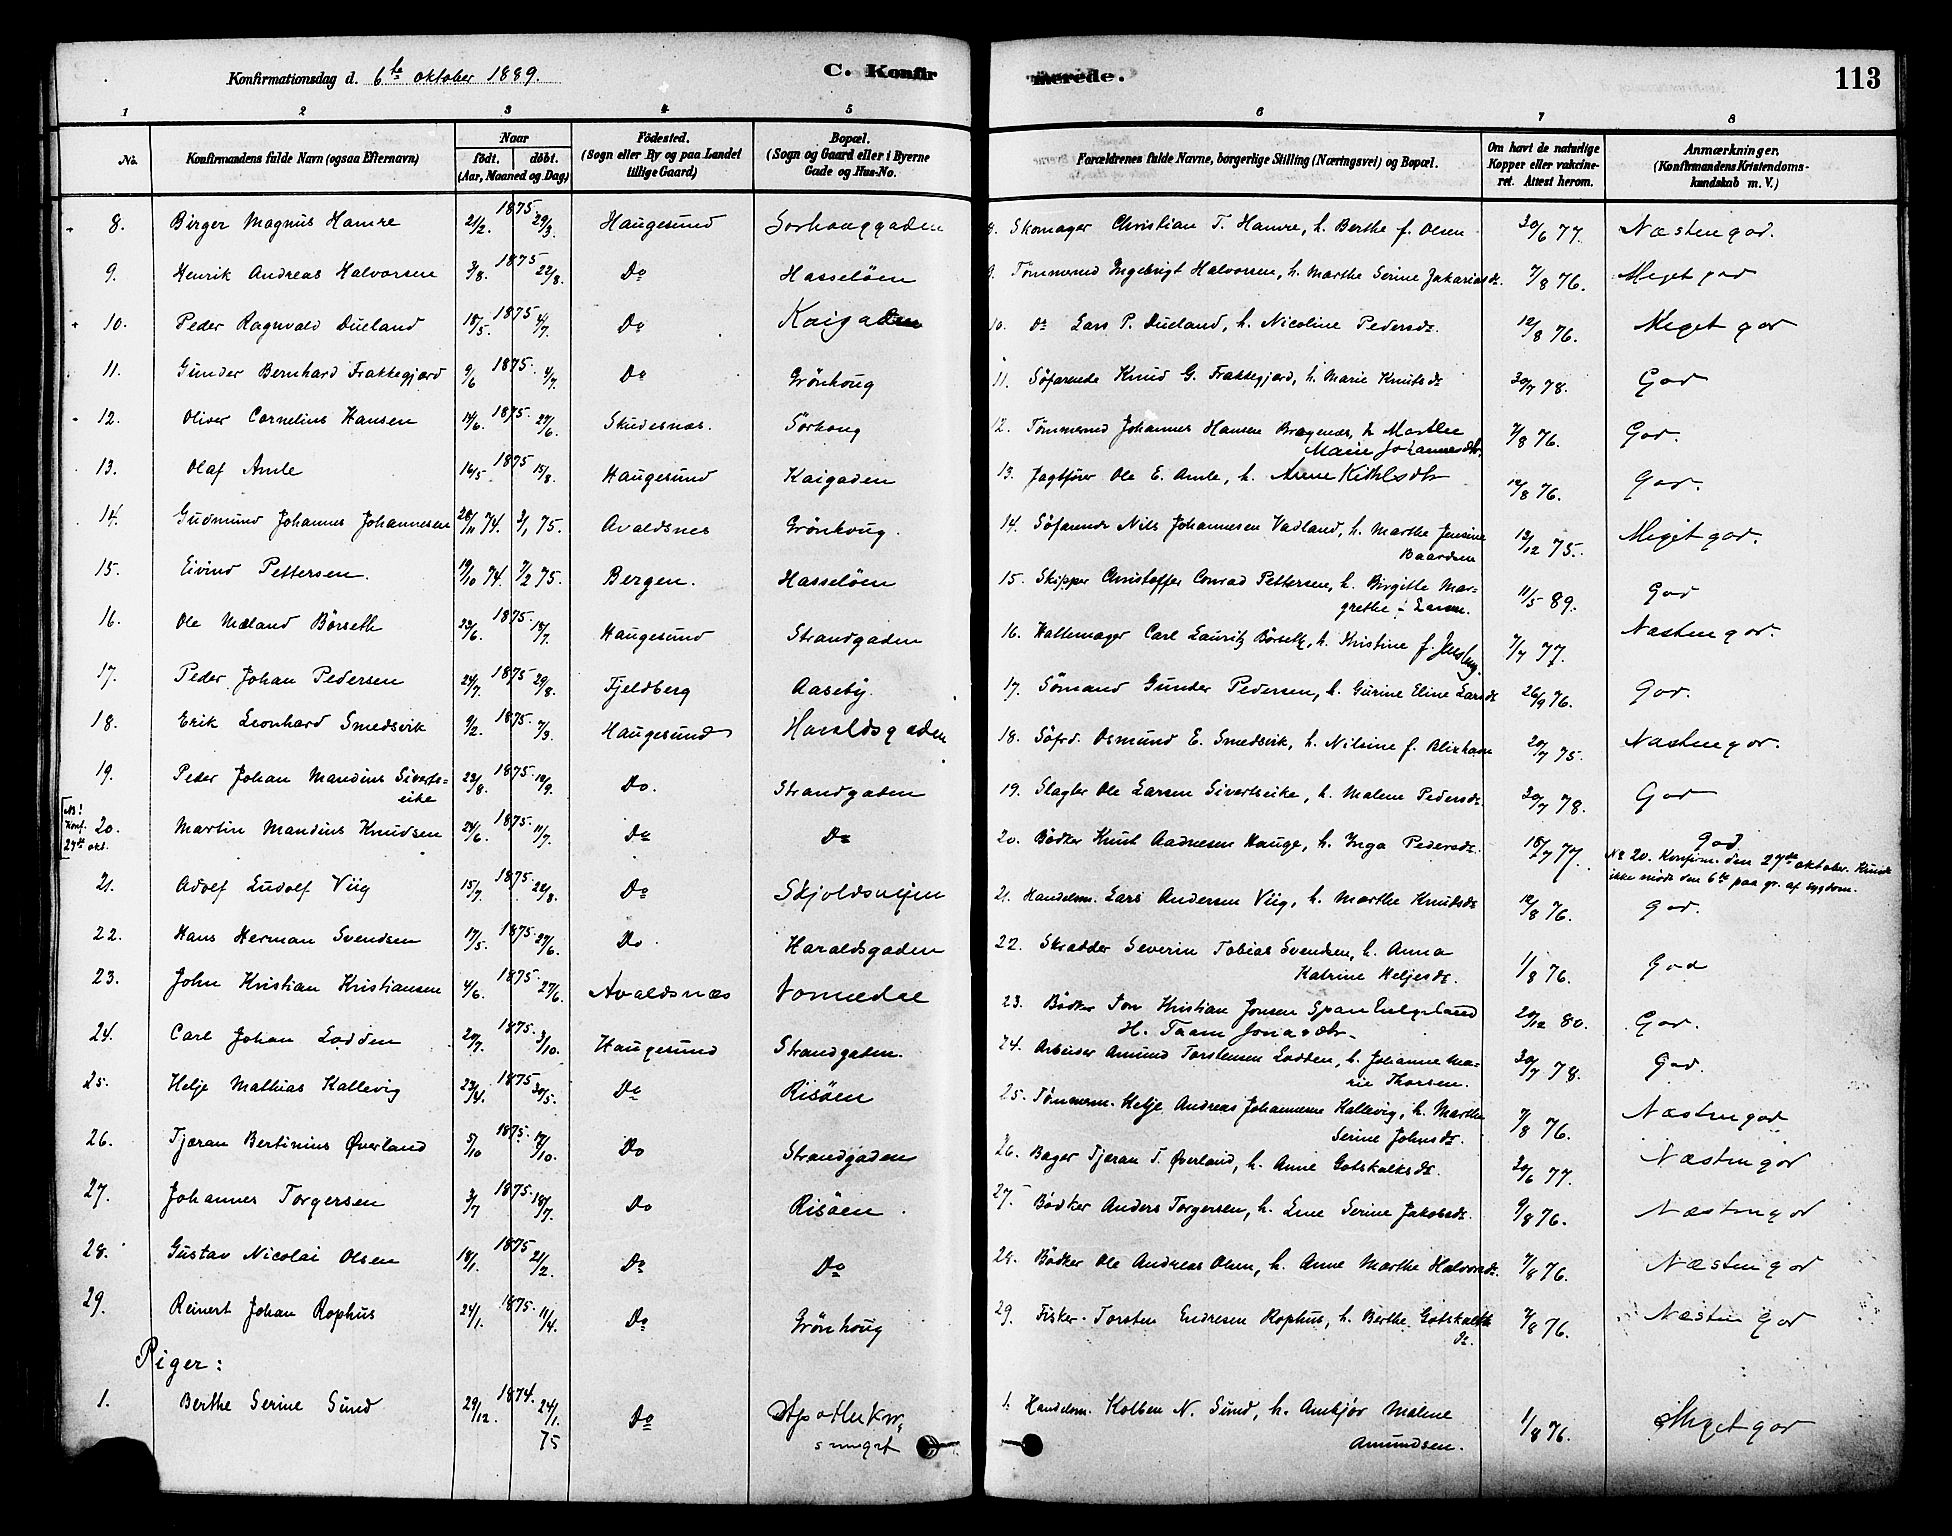 Konfirmationsdag d. 6te oktober 1889.
C. Konfirmerede.
113
1 2 3 4 5 6 7 8
No. Konfirmandens fulde Navn (ogsaa Efternavn) Naar födt. döbt. (Aar, Maaned og Dag) Födested. (Sogn eller By og paa Landet tillige Gaard) Bopæl. (Sogn og Gaard eller i Byerne Gade og Hus-No. Forældrenes fulde Navne, borgerlige Stilling (Næringsvei) og Bopæl. Om havt de naturlige Kopper eller vakcineret. Attest herom. Anmærkninger. (Konfirmandens Kristendomskundskab m. V.)
8. Birger Magnus Hamre 21/2. 1875. 29/3. Haugesund Sorhouggaden 8. Skomager Christian T. Hamre, h. Berthe f. Olsen 30/6 77. Næsten god.
9. Henrik Andreas Halvorsen 3/8. 1875 22/8. Do Hasselöen 9. Tömmermd Ingebrigt Halvorsen, h. Marthe Serine Zakariasdr. 7/8 76. Meget god
10. Peder Ragnvald Dueland 18/5. 1875 4/7. Do Kaigaden 10. Do Lars P. Dueland, h. Nicoline Pedersdr. 12/8 76. Meget god
11. Gunder Bernhard Frakkegjærd 9/6 1875. 4/7. Do Grönhoug 11. Söfarende Knud G. Frakkegjerd, h. Marie Knutsdr 30/7 78. God
12. Oliver Cornelius Hansen 14/6. 1875. 27/6. Skudesnæs. Sörhoug 12. Tömmermd Johannes Hansen Bragenæs, h. Marthe
Marie Johannesdtr. 7/8 76. God.
13. Olaf Amle 16/5 1875 15/8. Haugesund Kaigaden 13. Jagtfører Ole E. Amle, h. Arene Kithilsdtr 12/8 76. God.
14. Gudmund Johannes Johannesen 28/11 74. 3/1 75. Avaldsnes Grönhoug. 14. Söfarende Nils Johannesen Vadland, h. Marthe Jensine
Baardsen 13/12 75. Meget god.
15. Eivind Pettersen. 19/10 74. 7/2 75. Bergen. Hasselöen 15. Skipper Christoffer Conrad Pettersen, h. Birgitte Mar-
grethe f. Larsen. 11/5 89. God
16. Ole Mæland Börseth 23/6. 1875. 18/7. Haugesund Strandgaden 16. Hattemager Carl Lauritz Börseth, h. Kristine f. 7/7 77. Næsten god.
17. Peder Johan Pedersen 24/7. 1875 29/8. Fjeldberg Aaseby. 17. Sömand Gunder Pedersen, h. Gurine Eline Larsdr 26/9 76. God.
18. Erik Leonhard Smedsvik 9/2. 1875. 7/3. Haugesund Haraldsgaden 18. Söfrd. Osmund E. Smedsvik, h. Nilsine f. Blixhavn 20/7 75. Næsten god.
19. Peder Johan Mandius Siverts-
eike 23/8. 1875. 19/9. Do. Strandgaden 19. Slagter Ole Larsen Sivertseike, h. Malene Pedersdr. 30/7 78. God
NB! Konf. 27de okt. 20. Martin Mandius Knudsen 24/6. 1875. 11/7. Do Do 20. Bödker Knut Aadnesen Hauge, h. Inga Pedersdr. 18/7 77. God
No 20. Konfirm. den 27de oktober. Kunde
ikke möde den 6te paa gr. af sygdom.
21. Adolf Ludolf Viig 15/7. 1875. 22/8. Do Skjoldsveien 21. Handelsm. Lars Andersen Viig, h. Marthe Knudsdr 12/8 76. God.
22. Hans Herman Svendsen 17/5. 1875. 27/6. Do. Haraldsgaden 22. Skrædder Severin Tobias Svendsen, h. Anna
Katrine Heljesdr. 1/8 76. God
23. John Kristian Kristiansen 4/6. 1875. 27/6. Avaldsnæs 23. Bödker Jon Kristian Jonsen Spanhelgeland
H. Jonasdtr. 20/12 80. God.
24. Carl Johan Lodden 20/7. 1875. 3/10. Haugesund Strandgaden. 24. Arbeider Amund Torstensen Lodden, h. Johanne Ma-
rie Thorsen. 30/7 78. God.
25. Helje Mathias Kallevig 23/4. 1875 30/5. Do Risöen 25. Tömmerm. Helje Andreas Johannesen Kallevig, h. Marthe
Serine Johnsdr. 7/8 76. Næsten god
26. Tjæran Bertinius Øverland 5/10 1875. 17/10. Do Strandgaden 26. Bager Tjæran T. Øverland, h. Anne Gotskalksdr. 20/6 77. Næsten god
27. Johannes Torgersen 3/7 1875. 18/7. Do Risöen. 27. Bödker Anders Torgersen, h. Lene Serine Jakobsdr. 9/8 76. Næsten god
28. Gustav Nicolai Olsen 18/1. 1875 21/2. Do Do 28. Bödker Ole Andreas Olsen, h. Anne Marthe Halvorsdr. 7/8 76. Næsten god
29. Reinert Johan Rophus 24/1. 1875. 11/4. Do Grönhoug 29. Fisker. Torsten Endresen Rophus, h. Berthe Gotskalks
dr. 7/8 76. Næsten god
Piger:
1. Berthe Serine Sund 29/12. 1874. 24/1. 75 Do 1. Handelsm. Kolben N. Sund, h. Anbjör Malene
Amundsen. 1/8 76. Meget god